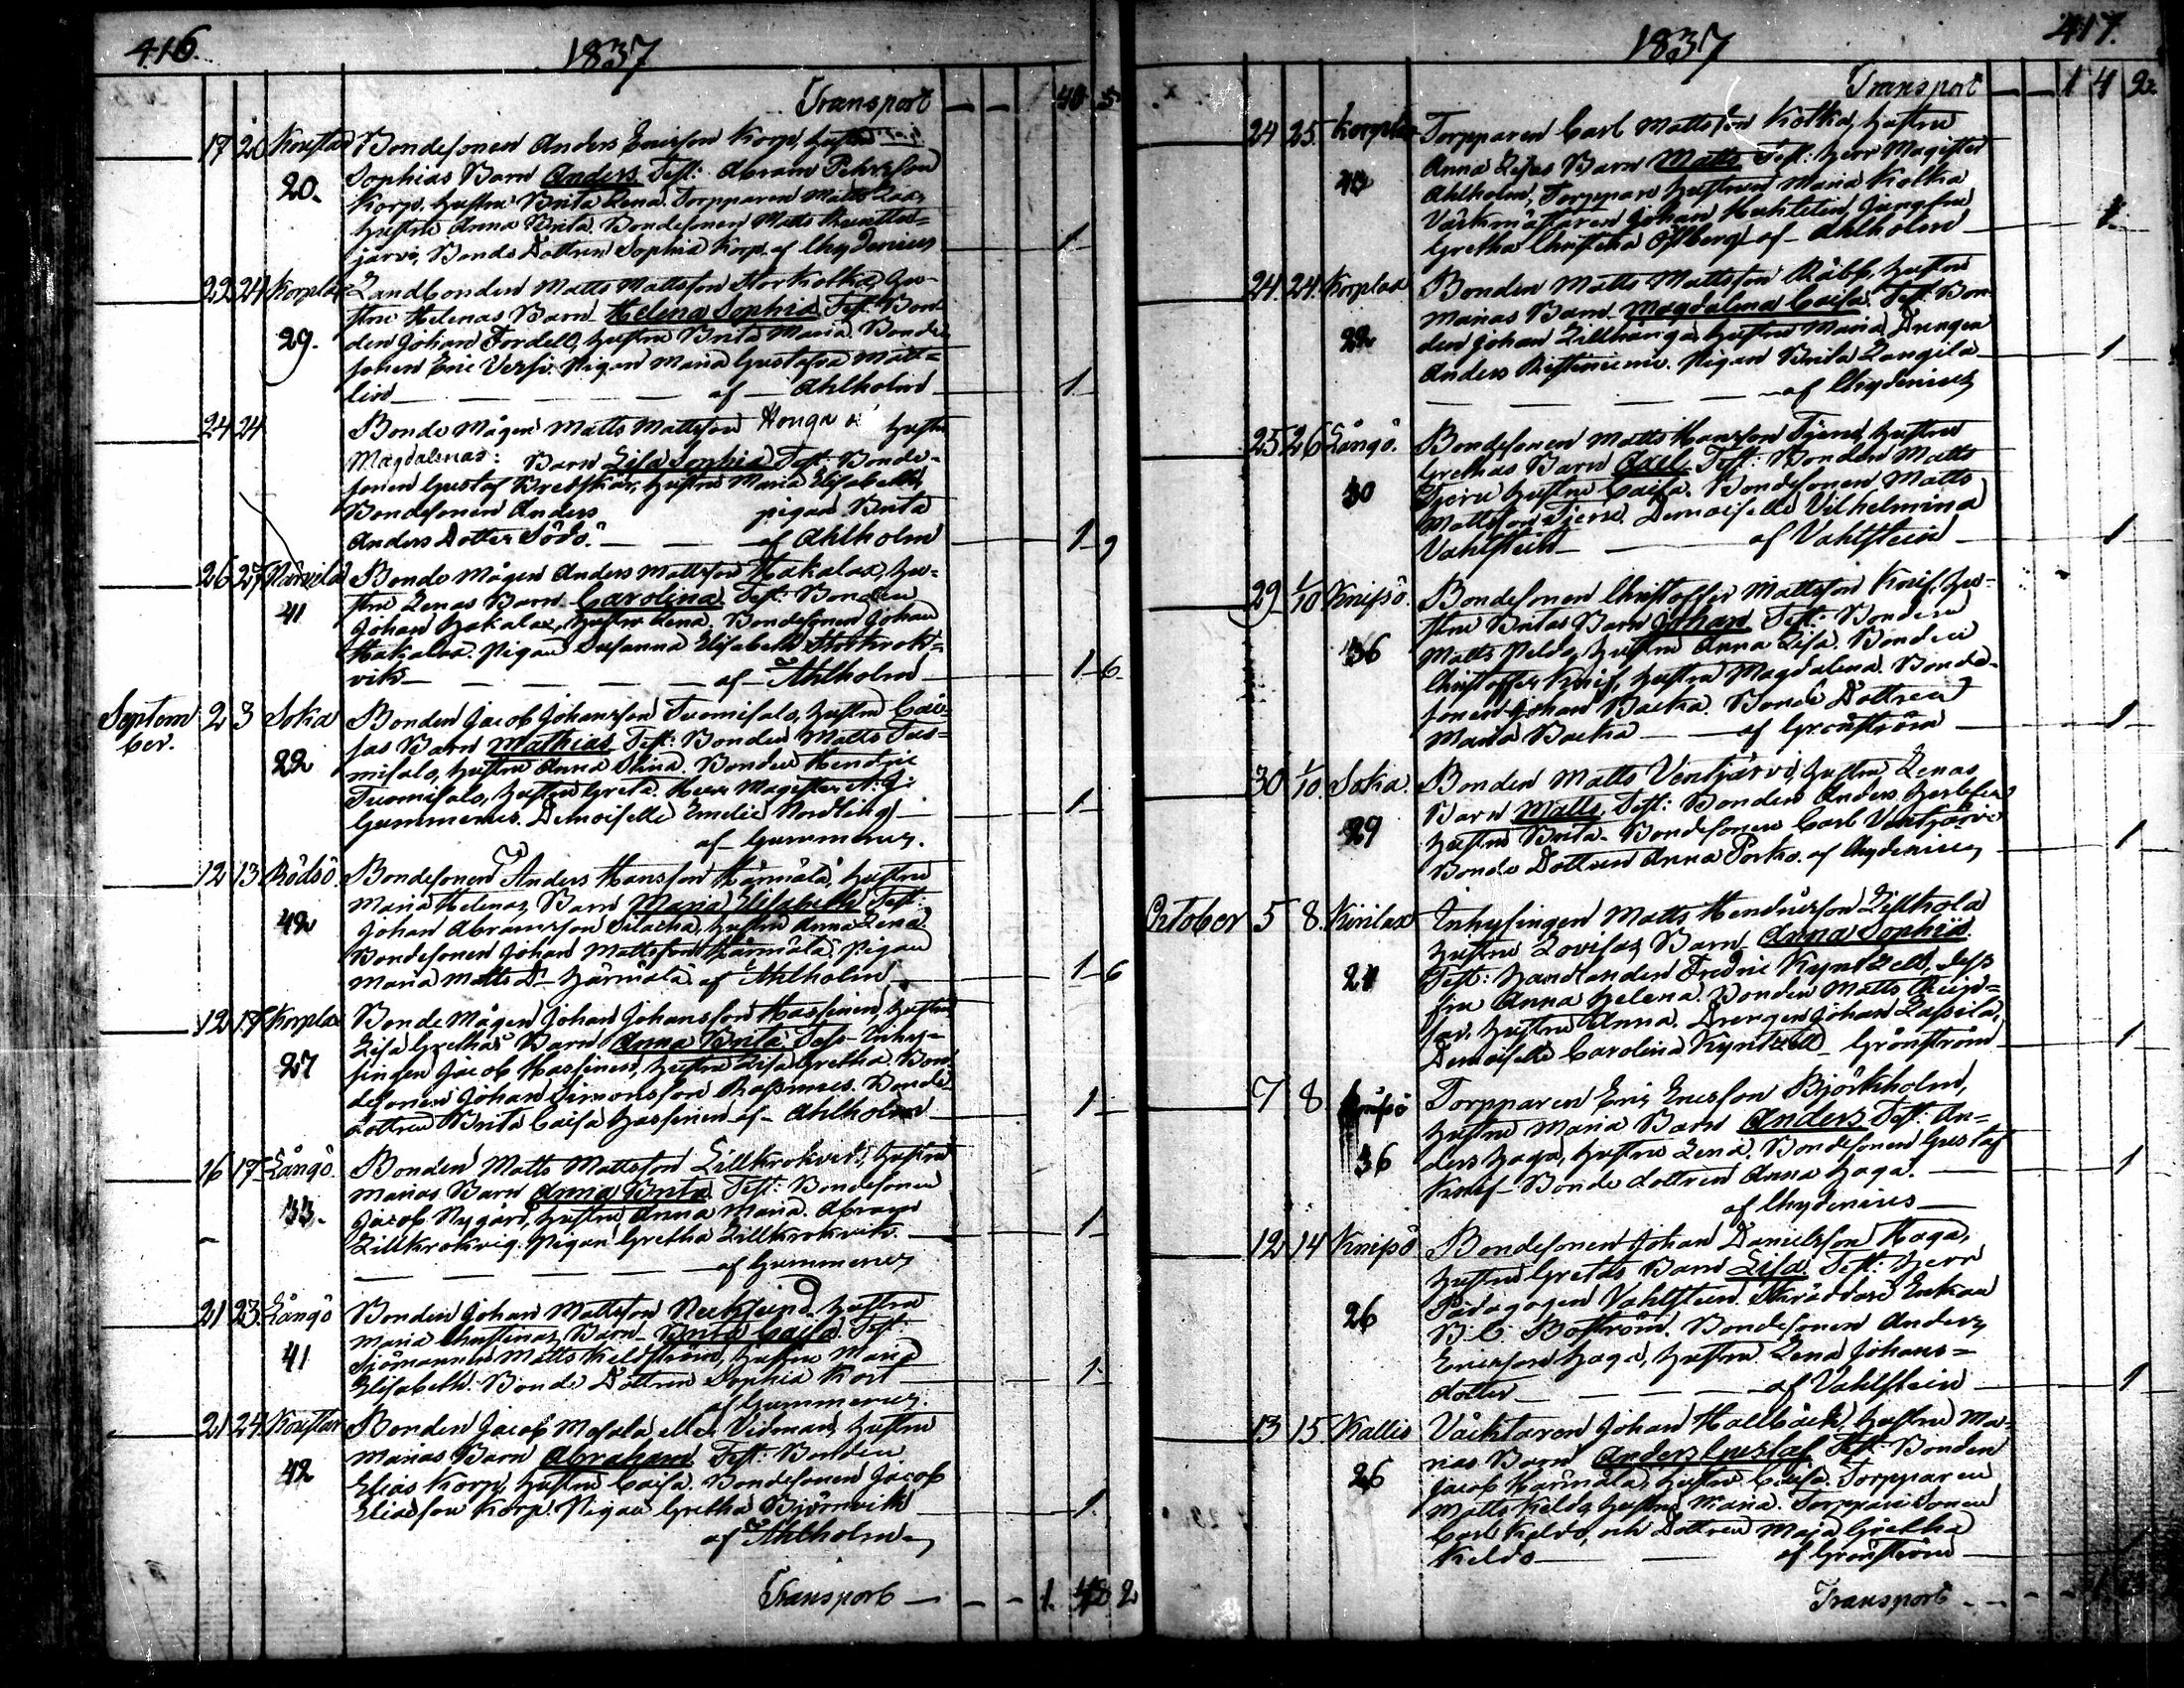 416.
1837
Transport — — 40 5
17 20 Bondesonen Anders Ericsson Korp, hustru
Sophias Barn Anders Test: Abram Pehrsson
20. Korp, hustru Brita Lena. Torpparen Matts
hustru Anna Brita. Bondesonen Matts
järvi, Bonde Dottren Sophia Korp. af Chydenius — 1
22 24 Korplax Landbonden Matts Mattsson Storkotka, hu-
stru Helenas Barn Helena Sophia Test: Bon-
29. den Johan Fordell, hustru Brita Maria. Bonde-
sonen Eric Versi. Pigan Maria Gustafva Matt-
lin — — — af — Ahlholm — 1
24 24 Bonde Mågen Matts Mattsson Honga hustru
Magdalenas: Barn Lisa Sophia Test: Bonde-
sonen Gustaf Bredskär, hustru Maria Elisabeth,
Bondesonen Anders pigan Brita
Anders Dotter Södö. — — af Ahlholm — 1 9
26 27 Bonde Mågen Anders Mattsson Hakalax, hu-
stru Lenas Barn Carolina Test: Bonden
41 Johan Hakalax, hustru Lena. Bondesonen Johan
Hakalax. Pigan Susanna Elisabeth Storkrok-
vik — — — af — Ahlholm — 1 6
Septem 2 3 Soka Bonden Jacob Johansson Tuomisalo, hustru Cai-
ber. sas Barn Mathias Test: Bonden Matts Tuo-
22 misalo, hustru Anna Stina. Bonden Hendric
Tuomisalo, hustru Greta. Herr Magister A: G:
Gummerus. Demoiselle Emelie Nordling — 1
af Gummerus.
12 13 Rödsö Bondesonen Anders Hansson Härmälä, hustru
Maria Helenas Barn Maria Elisabeth Test:
42 Johan Abramsson Silacka, hustru Anna Lena.
Bondesonen Johan Mattsson Härmälä. Pigan
Maria Matts Dr Härmälä af Ahlholm — 1 6
12 17 Korplax Bonde Mågen Johan Johansson Hassinen, hustru
Lisa Grethas Barn Anna Brita. Test. Inhy-
27 singen Jacob Hassinen, hustru Lisa Gretha. Bon-
desonen Johan Simonsson. Bonde
dottren Brita Caisa Hassinen af — Ahlholm — 1
16 17 Långö Bonden Matts Mattsson Lillkrokvik, hustru
Marias Barn Anna Brita Test: Bondesonen
33. Jacob Nygård, hustru Anna Maria. Abram
Lillkrokvig. Pigan Gretha Lillkrokvik. — 1
— — — af Gummerus
21 23 Långö Bonden Johan Mattsson hustru
Maria Christinas Barn Brita Caisa Test
41 Sjömannen Matts Keldström, hustru Maria
Elisabeth. Bonde Dottren Sophia Kort — 1
af Gummerus.
21 24 Bonden Jacob Mosala eller Vidman, hustru
Marias Barn Abraham Test: Bonden
42 Elias Korp, hustru Caisa. Bondesonen Jacob
Eliasson Korp. Pigan Gretha Björnvik — 1
af Ahlholm
Transport — — — 1. 48 2
417.
1837
Transport — — 1 4 2
24 25. Korplax Torpparen Carl Mattsson Kotka, hustru
Anna Lisas Barn Matts Test: Herr Magister
Ahlholm, Torppare hustrun Maria Kotka
Värkmästaren Johan Jungfru
Gretha Christina Östberg af — Ahlholm — 1
24. 24. Korplax Bonden Matts Mattsson Råbb, hustru
Marias Barn Magdalena Caisa. Test: Bon-
22 den Johan Lillhånga, hustru Maria, Drengen
Anders. Pigan Brita Långila — 1
— — — af Chydenius
25 26 Långö. Bondesonen Matts Hansson Tjeru, hustru
Grethas Barn Axel Test: Bonden Matts
30 Tjeru hustru Caisa. Bondesonen Matts
Mattsson Tjeru. Demoiselle Vilhelmina
Vahlstein — af Vahlstein — 1
29 1/10 Knifsö. Bondesonen Christoffer Mattsson Knif, hu-
stru Britas Barn Johan Test: Bonden
36 Matts Peldo, hustru Anna Lisa. Bonden
Christoffer Knif, hustru Magdalena. Bonde-
sonen Johan Backa. Bonde Dottren
Maria Backa — af Grönström — 1
30 1/10. Soka. Bonden Matts Ventjärvi, hustru Lenas
Barn Matts. Test: Bonden Anders
29 hustru Brita. Bondesonen Carl Ventjärvi
Bonde Dottren Anna Porko. af Chydenius — 1
October 5 8. Kirilax Inhysingen Matts Hendricsson Lillkola
hustru Lovisas Barn Anna Sophia.
21 Test: Handlanden Fredric Kyntzell, dess
fru Anna Helena. Bonden Matts
hustru Anna. Drengen Johan Lassila,
Demoiselle Carolina Kyntzell Grönström — 1
7 8 Knifsö Torpparen Eric Ericsson Björkholm,
hustru Maria Barn Anders Test: An-
36 ders Haga, hustru Lena. Bondesonen Gustaf
Knif — Bonde dottren Anna Haga. — 1
af Chydenius —
12 14 Knifsö Bondesonen Johan Danielsson Haga,
hustru Gretas Barn Lisa. Test: Herr
26 Pädagogen Vahlstein. Skräddare Enkan
B. C. Boström. Bondesonen Anders
Ericsson Haga, hustru Lena Johans-
dotter — — — af Vahlstein — 1
13 15. Kallis Väcktaren Johan Hallbäck, hustru Ma-
rias Barn Anders Gustaf Test: Bonden
26 Jacob Härmälä, hustru Caisa. Torpparen
Matts Keldo, hustru Maria. Torppare Sonen
Carl Keldo, och Dottren Maja Gretha
Keldo — — af Grönström —
Transport — — —